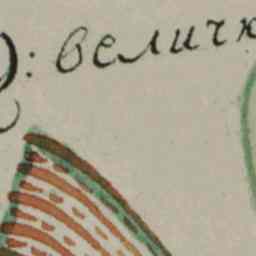 : величк